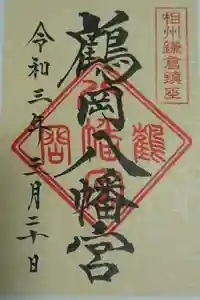 相州鎌倉鎮座
鶴岡八幡宮
令和三年三月二十日